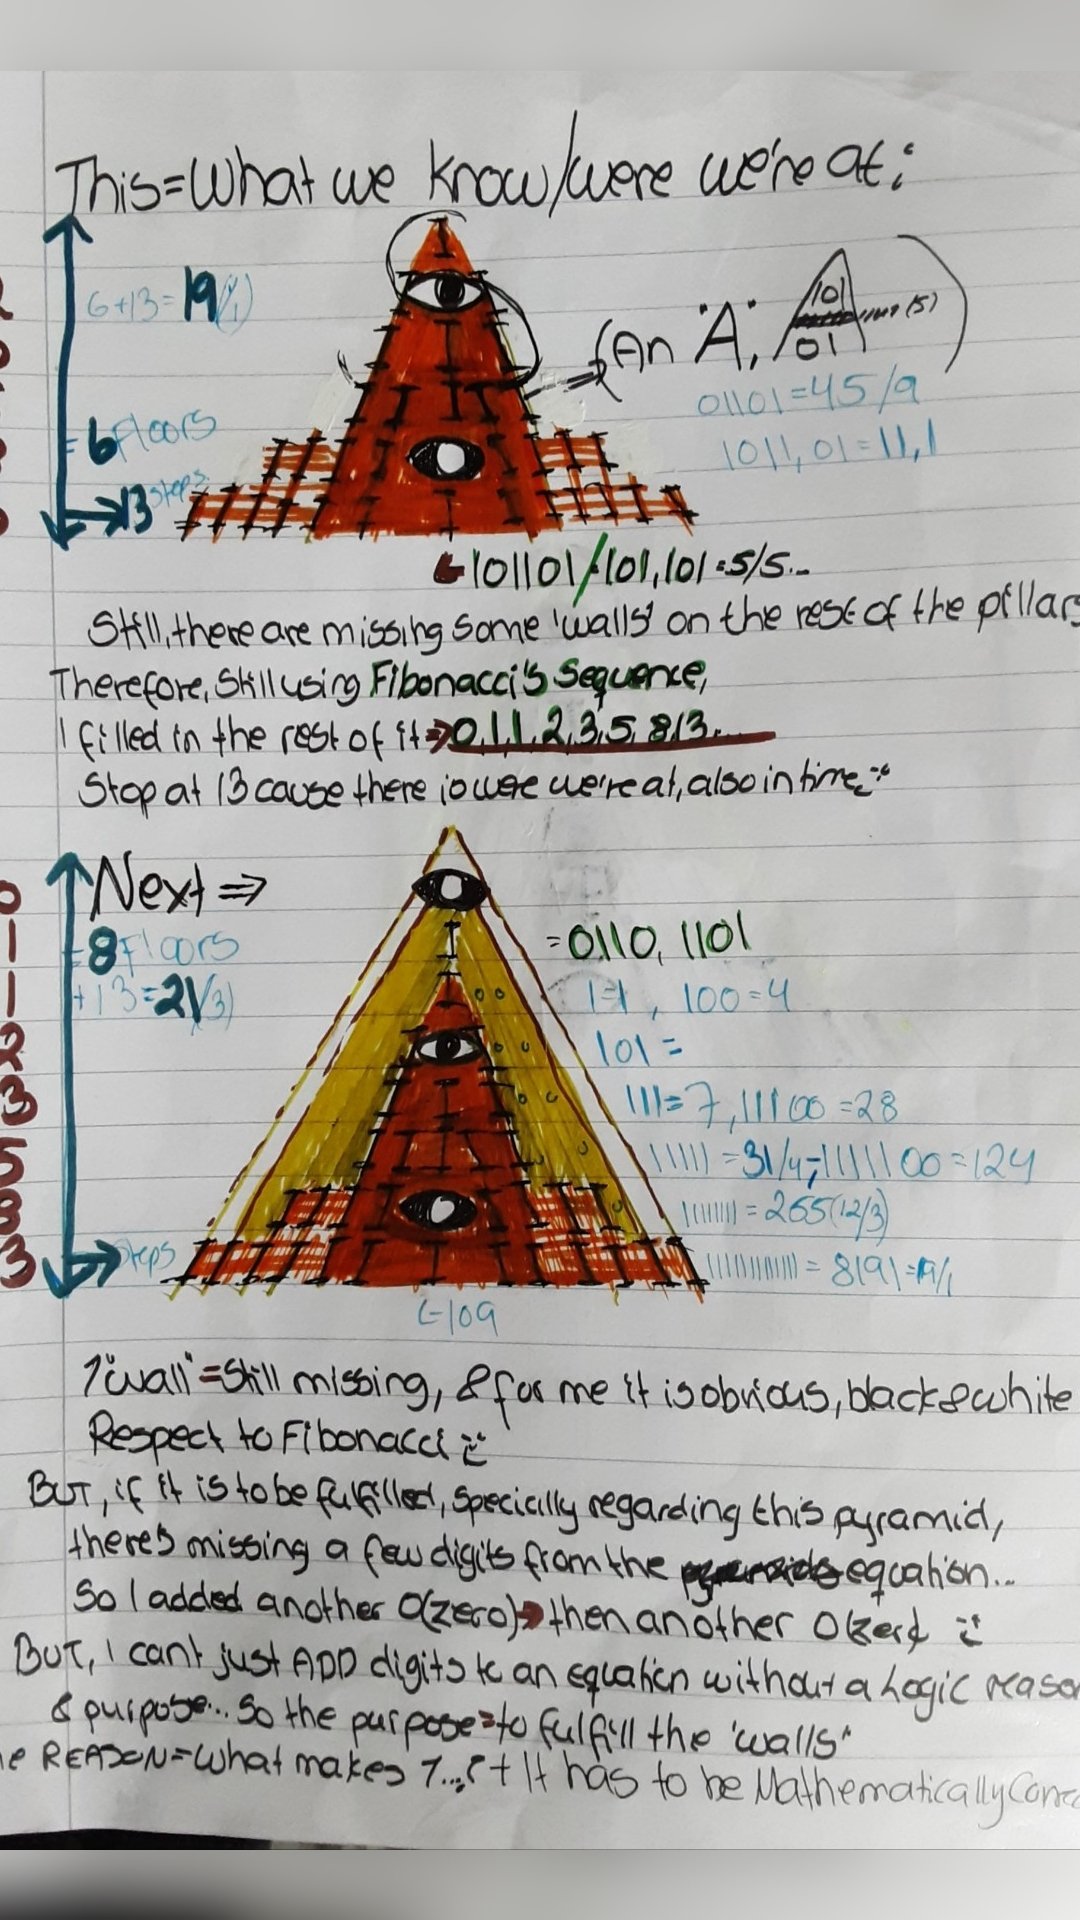 This=What we know/were we're at:
6+13=19(1)
(An "A", 101 (5))
01
01101=45/9
=6 Floors
1011,01=11,1
13 steps
101101/=101,101=5/5...
Still, there are missing some 'walls' on the rest of the pillars
Therefore, Still using Fibonacci's Sequence,
I filled in the rest of it⇒0,1,1,2,3,5,8,13....
Stop at 13 cause there is were we're at, also in time
Next ⇒
0
=8 Floors
=0110, 1101
1
+13=21(3)
1=1, 100=4
1
2
101=
3
111=7, 11100=28
5
11111=31/4, 1111100=124
8
=255(12/3)
3
steps
=8191=19/1
109
1 "wall"=Still missing, & for me it is obvious, black&white
Respect to Fibonacci
BUT, if it is to be fulfilled, specially regarding this pyramid,
there's missing a few digits from the equation...
So I added another 0(zero)→then another 0(zero)
BUT, I can't just ADD digits to an equation without a Logic reason
& purpose... So the purpose=to fulfill the 'walls'
REASON=What makes 1...? + It has to be Mathematically